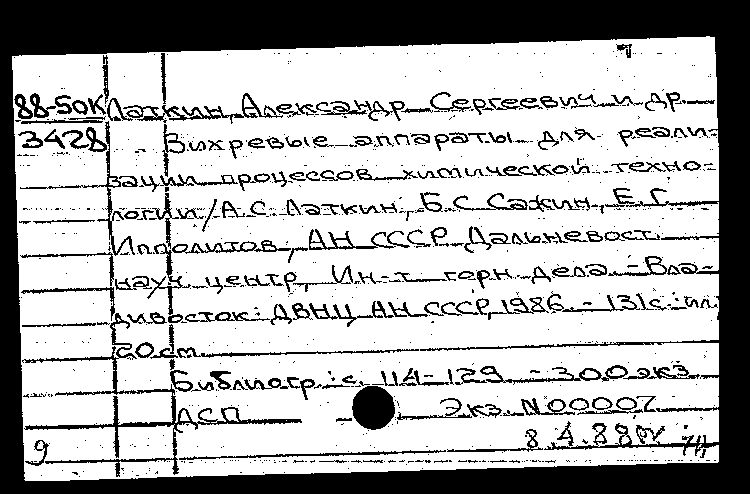 88-50К Латкин, Александр Сергеевич и др.
3428 Вихревые аппараты для реали-
зации процессов химической техно-
логии / А.С. Латкин, Б.С. Сажин, Е.Г.
Ипполитов; АН СССР, Дальневост.
науч. центр, Ин-т горн. дела. - Вла-
дивосток: ДВНЦ АН СССР, 1986. - 131 с.: ил.;
20 см.
Библиогр.: с. 114-129. - 300 экз.
ДСП Экз. N00007
9 8.4.88